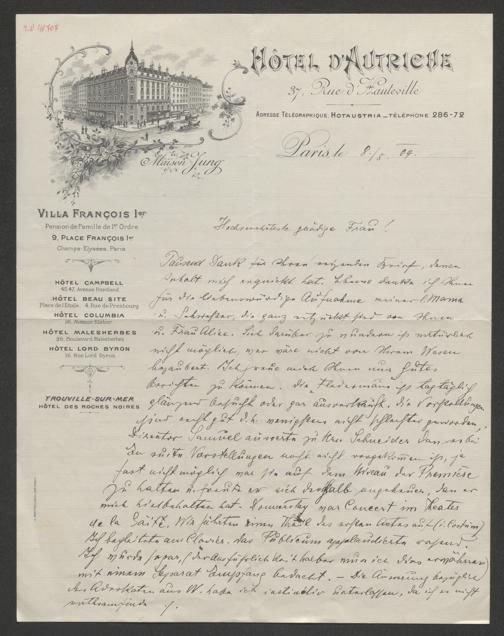 HÔTEL D'AUTRICHE
37, Rue d'Hauteville
ADRESSE TÉLÉGRAPHIQUE, HOTAUSTRIA _ TÉLÉPHONE 286-72
Maison Jung
Paris, le 8/5. 09.
VILLA FRANÇOIS Ier
Pension de Famille de 1er Ordre
9, PLACE FRANÇOIS Ier
Champs Elysées, Paris
HÔTEL CAMPBELL
45.47, Avenue Friedland
HÔTEL BEAU SITE
Place de l'Etoile, 4, Rue de Presbourg
HÔTEL COLUMBIA
16, Avenue Kléber
HÔTEL MALESHERBES
26, Boulevard Malesherbes
HÔTEL LORD BYRON
16, Rue Lord Byron
TROUVILLE-SUR-MER
HÔTEL DES ROCHES NOIRES
Hochverehrte gnädige Frau!
Tausend Dank für Ihren reizenden Brief, dessen
Inhalt mich erquickt hat. Ebenso danke ich Ihnen
für die liebenswürdige Aufnahme meiner Mama
u. Schwester, die ganz entzückt sind von Ihnen
u. Frau Alice. Sich darüber zu wundern ist natürlich
nicht möglich, wer wäre nicht von Ihrem Wesen
bezaubert. Ich freue mich Ihnen nur Gutes
berichten zu können. Die Fledermaus ist tagtäglich
glänzend besucht oder gar ausverkauft. Die Vorstellungen
sind recht gut d.h. wenigstens nicht schlechter geworden,
Director Samuel äusserte zu Herrn Schneider dass er bei
den zweiten Vorstellungen noch nicht vorgekommen ist, ja
fast nicht möglich war sie auf dem Niveau der Première
zu halten u. freute er sich deshalb ungeheuer, dass er
mich hierbehalten hat. Donnerstag war Concert im Theater
de la Gaité. Wir führten einen Theil des ersten Actes auf (i. Costüm)
Ich begleitete am Clavier. das Publicum applaudierte rasend
Ich wurde sogar, der Ausführlichkeit halber muss ich dies erwähnen,
mit einem Separat Empfang bedacht. – Die Äusserung bezüglich
des Advokaten aus W. habe ich unterlassen, da ich es nicht